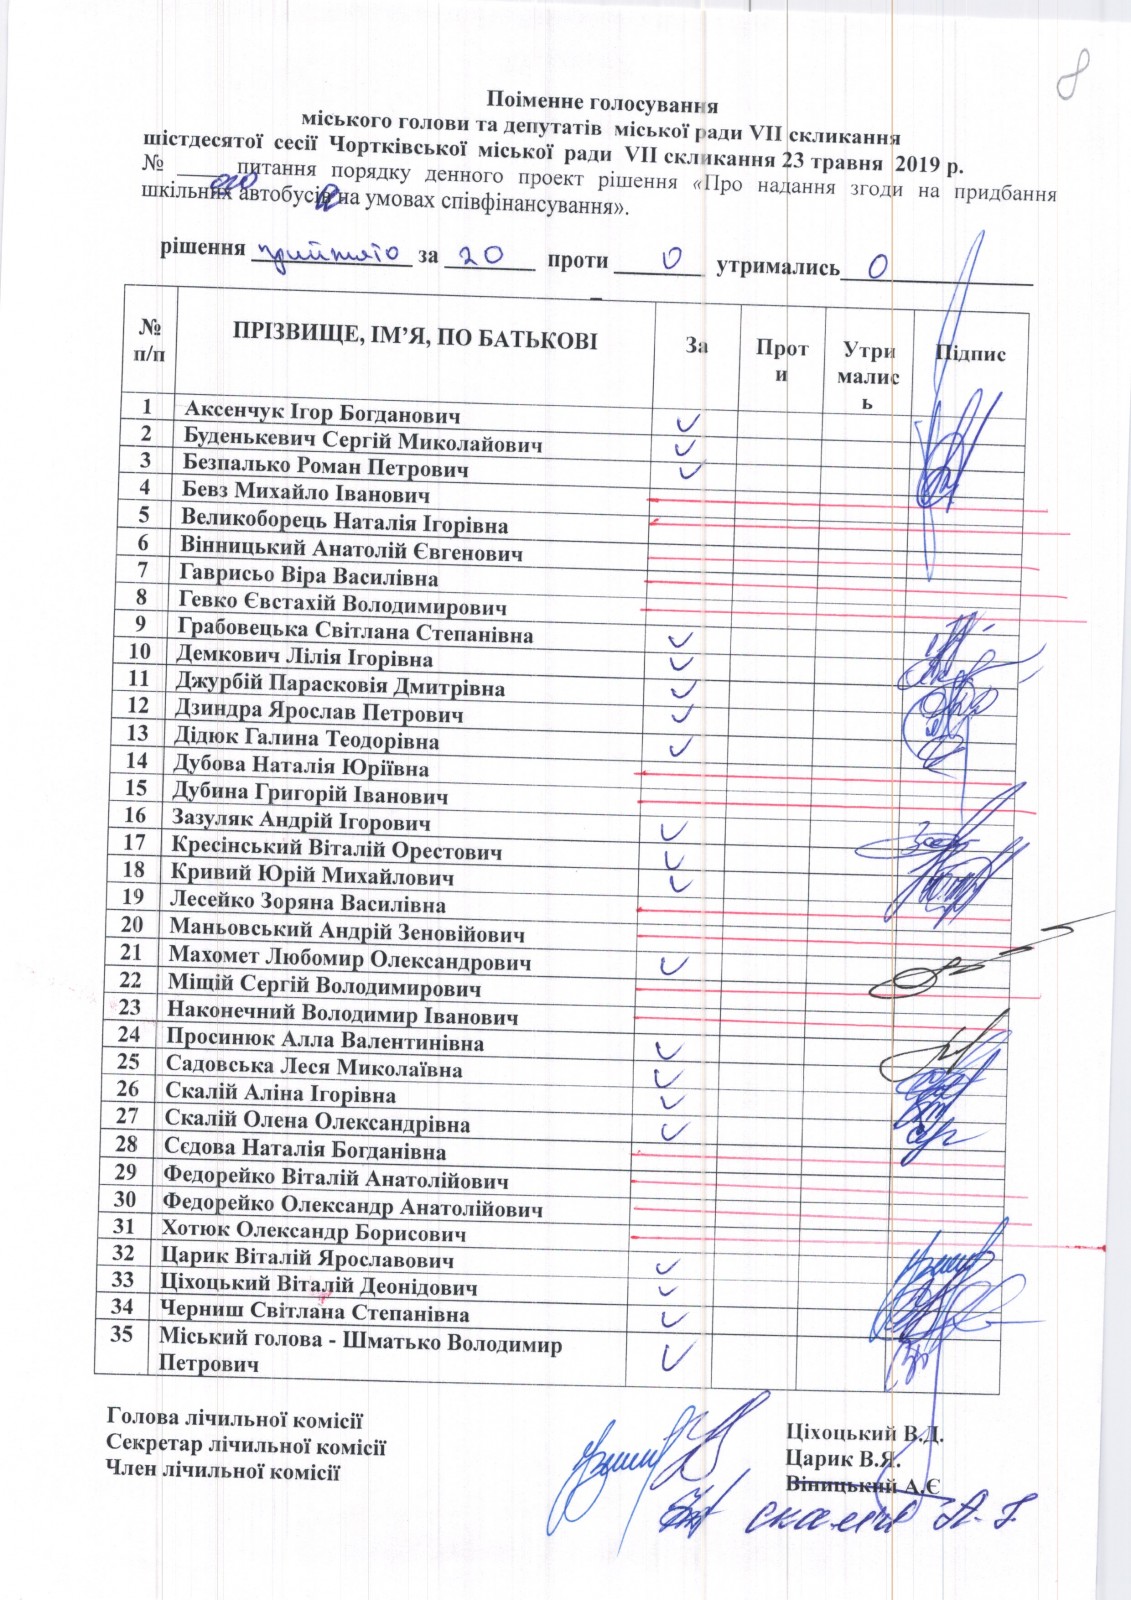 8
Поіменне голосування
міського голови та депутатів міської ради VII скликання
шістдесятої сесії Чортківської міської ради VII скликання 23 травня 2019 р.
№ ____ питання порядку денного проект рішення «Про надання згоди на придбання
шкільних автобусів на умовах співфінансування».
рішення прийнято за 20 проти 0 утримались 0
№ п/п ПРІЗВИЩЕ, ІМ’Я, ПО БАТЬКОВІ За Проти Утримались Підпис
1 Аксенчук Ігор Богданович ✓
2 Буденькевич Сергій Миколайович ✓
3 Безпалько Роман Петрович ✓
4 Бевз Михайло Іванович
5 Великоборець Наталія Ігорівна
6 Вінницький Анатолій Євгенович
7 Гаврисьо Віра Василівна
8 Гевко Євстахій Володимирович
9 Грабовецька Світлана Степанівна ✓
10 Демкович Лілія Ігорівна ✓
11 Джурбій Парасковія Дмитрівна ✓
12 Дзиндра Ярослав Петрович ✓
13 Дідюк Галина Теодорівна ✓
14 Дубова Наталія Юріївна
15 Дубина Григорій Іванович
16 Зазуляк Андрій Ігорович ✓
17 Кресінський Віталій Орестович ✓
18 Кривий Юрій Михайлович ✓
19 Лесейко Зоряна Василівна
20 Маньовський Андрій Зеновійович
21 Махомет Любомир Олександрович ✓
22 Міщій Сергій Володимирович
23 Наконечний Володимир Іванович
24 Просинюк Алла Валентинівна ✓
25 Садовська Леся Миколаївна ✓
26 Скалій Аліна Ігорівна ✓
27 Скалій Олена Олександрівна ✓
28 Сєдова Наталія Богданівна
29 Федорейко Віталій Анатолійович
30 Федорейко Олександр Анатолійович
31 Хотюк Олександр Борисович
32 Царик Віталій Ярославович ✓
33 Ціхоцький Віталій Деонідович ✓
34 Черниш Світлана Степанівна ✓
35 Міський голова - Шматько Володимир ✓
Петрович
Голова лічильної комісії Ціхоцький В.Д.
Секретар лічильної комісії Царик В.Я.
Член лічильної комісії Віницький А.Є
Скалій А. І.